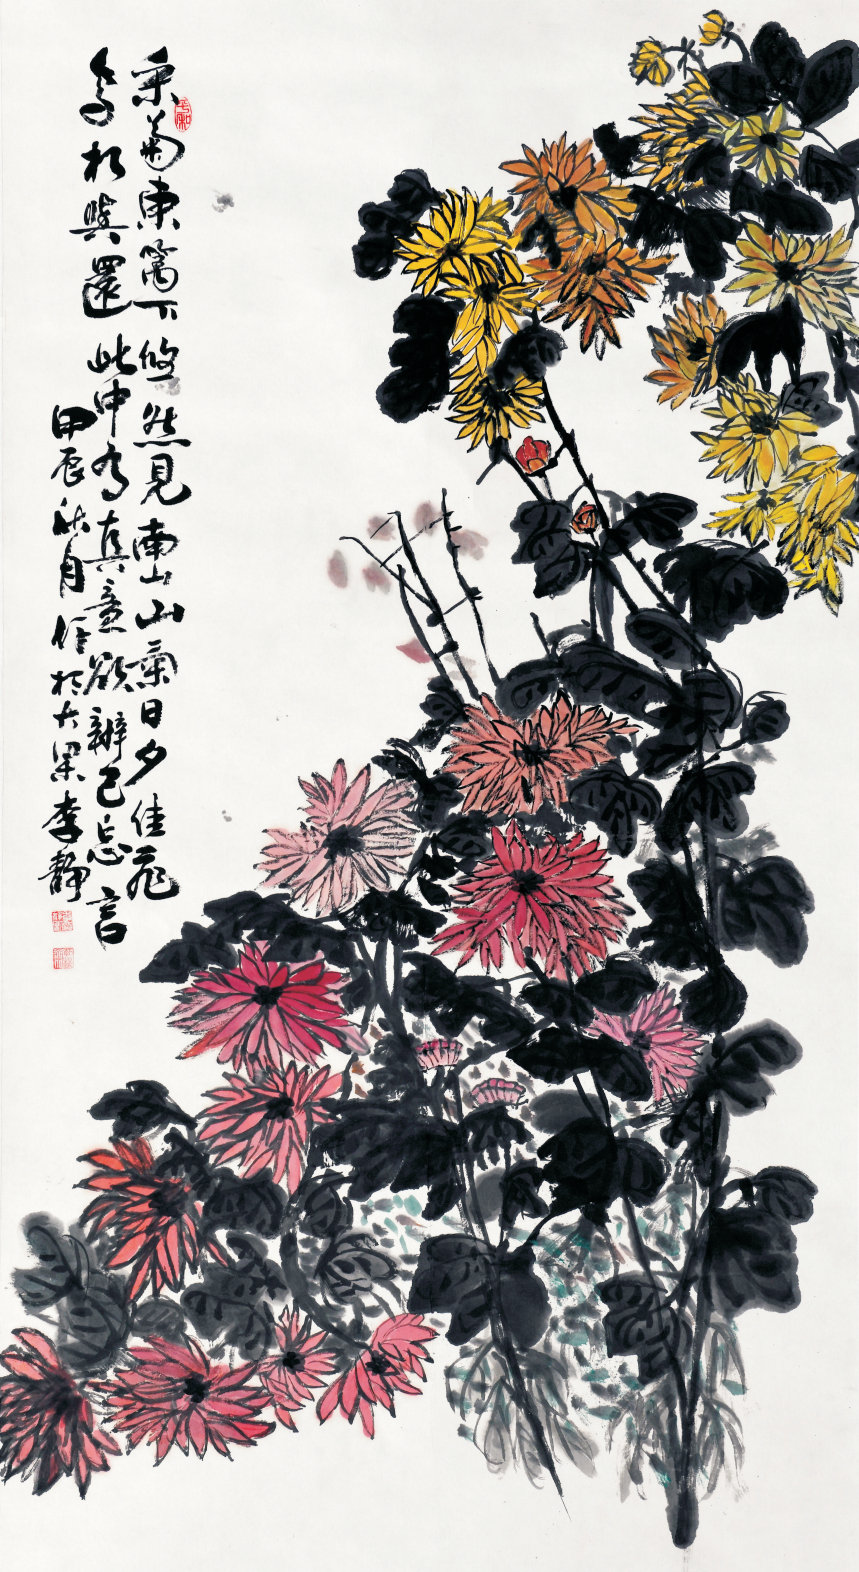 采菊東篱下悠然見南山山氣日夕佳飛
鳥相與還此中有真意欲辨已忘言
甲辰秋月作於大梁李靜